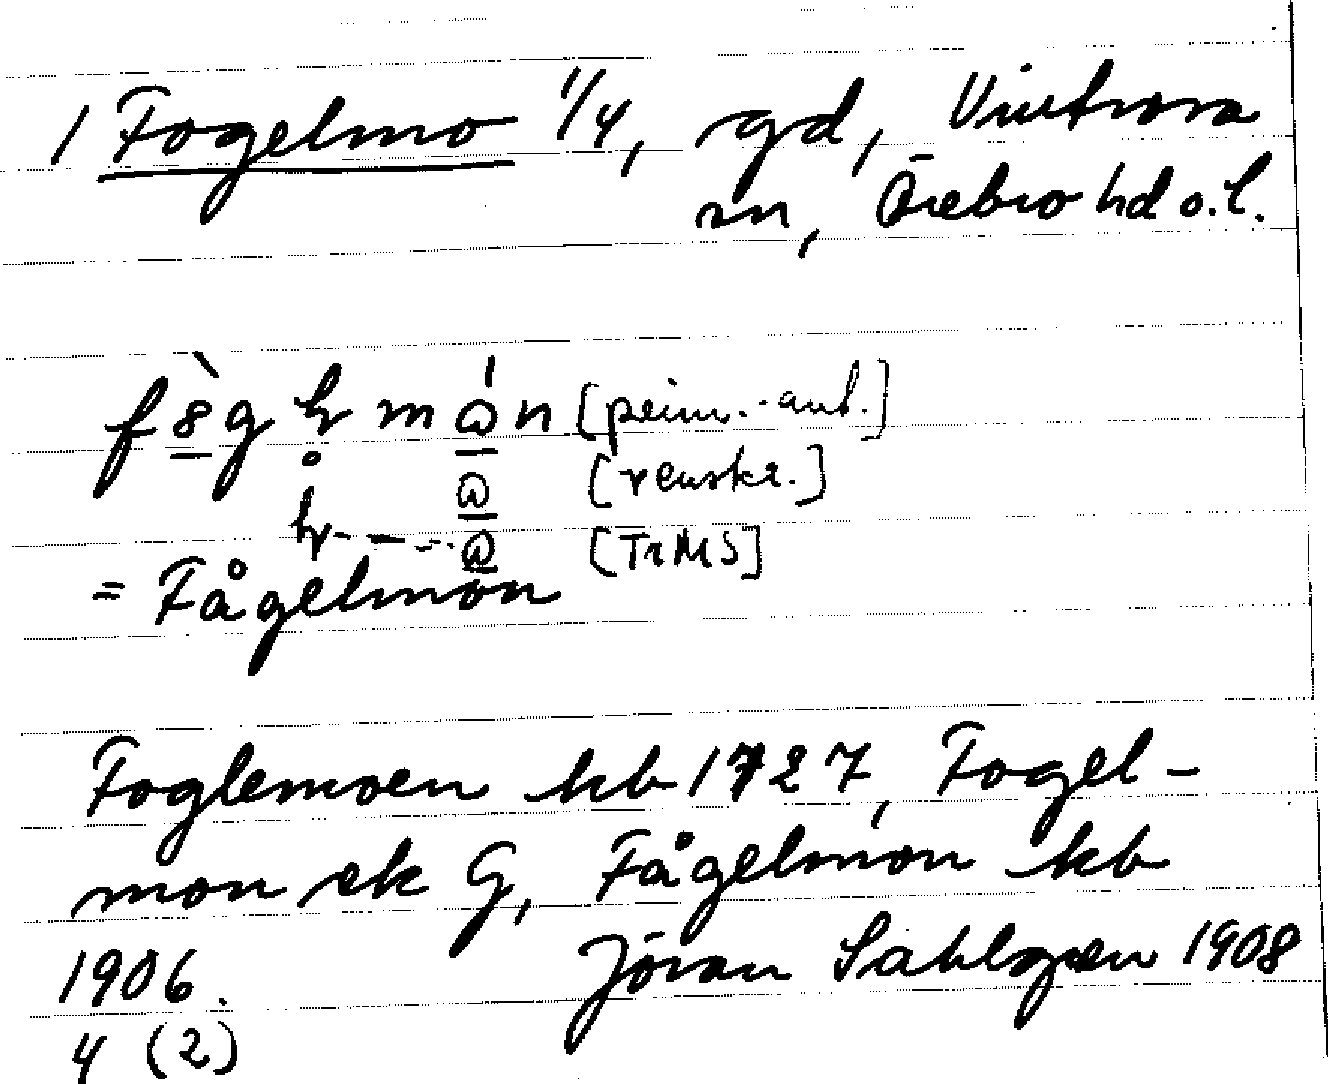 1 Fogelmo 1/4, gd, Vintrosa
sn, Örebro hd o. l.
[prim.-aut.]
[renskr.]
[TrMS]
= Fågelmon
Foglemoen kb 1727, Fogel-
mon ek G, Fågelmon kb
1906. Jöran Sahlgren 1908
4 (2)